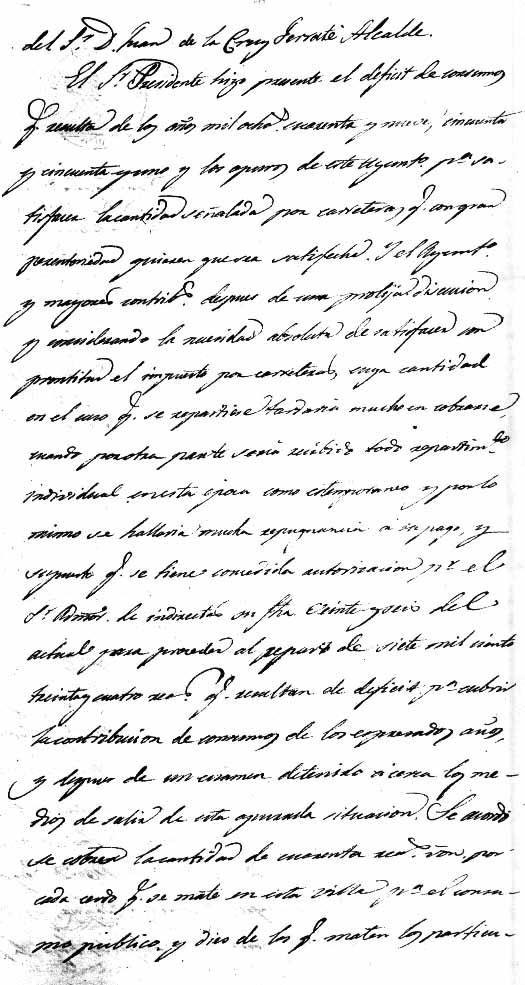 del Sr. D. Juan de la Cruz Serrate Alcalde.
El Sr. Presidente hizo presente el deficit de consumos
q. resulta de los años mil ocho. cuarenta y nueve, cincuenta
y cincuenta y uno y los apuros de este Ayunto. pa. sa-
tisfacer la cantidad señalada por carreteras q. con gran
perentoriedad quieren que sea satisfecha. Y el Ayunto.
y mayores contribs. despues de una prolija discusion
y considerando la necesidad absoluta de satisfacer con
prontitud el impuesto por carreteras, cuya cantidad
en el caso q. se repartiese tardaria mucho en cobrarse
cuando por otra parte seria recibido todo repartimto.
individual en esta epoca como estemporaneo y por lo
mismo se hallaria mucha repugnancia a su pago, y
supuesto q. se tiene concedida autorizacion pr. el
Sr. Admor. de indirectas su fha veinte y seis del
actual para proceder al reparto de siete mil ciento
treinta y cuatro rea. q. resultan de deficit pa. cubrir
la contribucion de consumos de los espresados años,
y despues de un examen detenido acerca los me-
dios de salir de esta apurada situacion. Se acordó
se cobren la cantidad de cuarenta rea. von. por
cada cerdo q. se mate en esta villa pa. el consu-
mo publico y dies de los q. maten los particu-